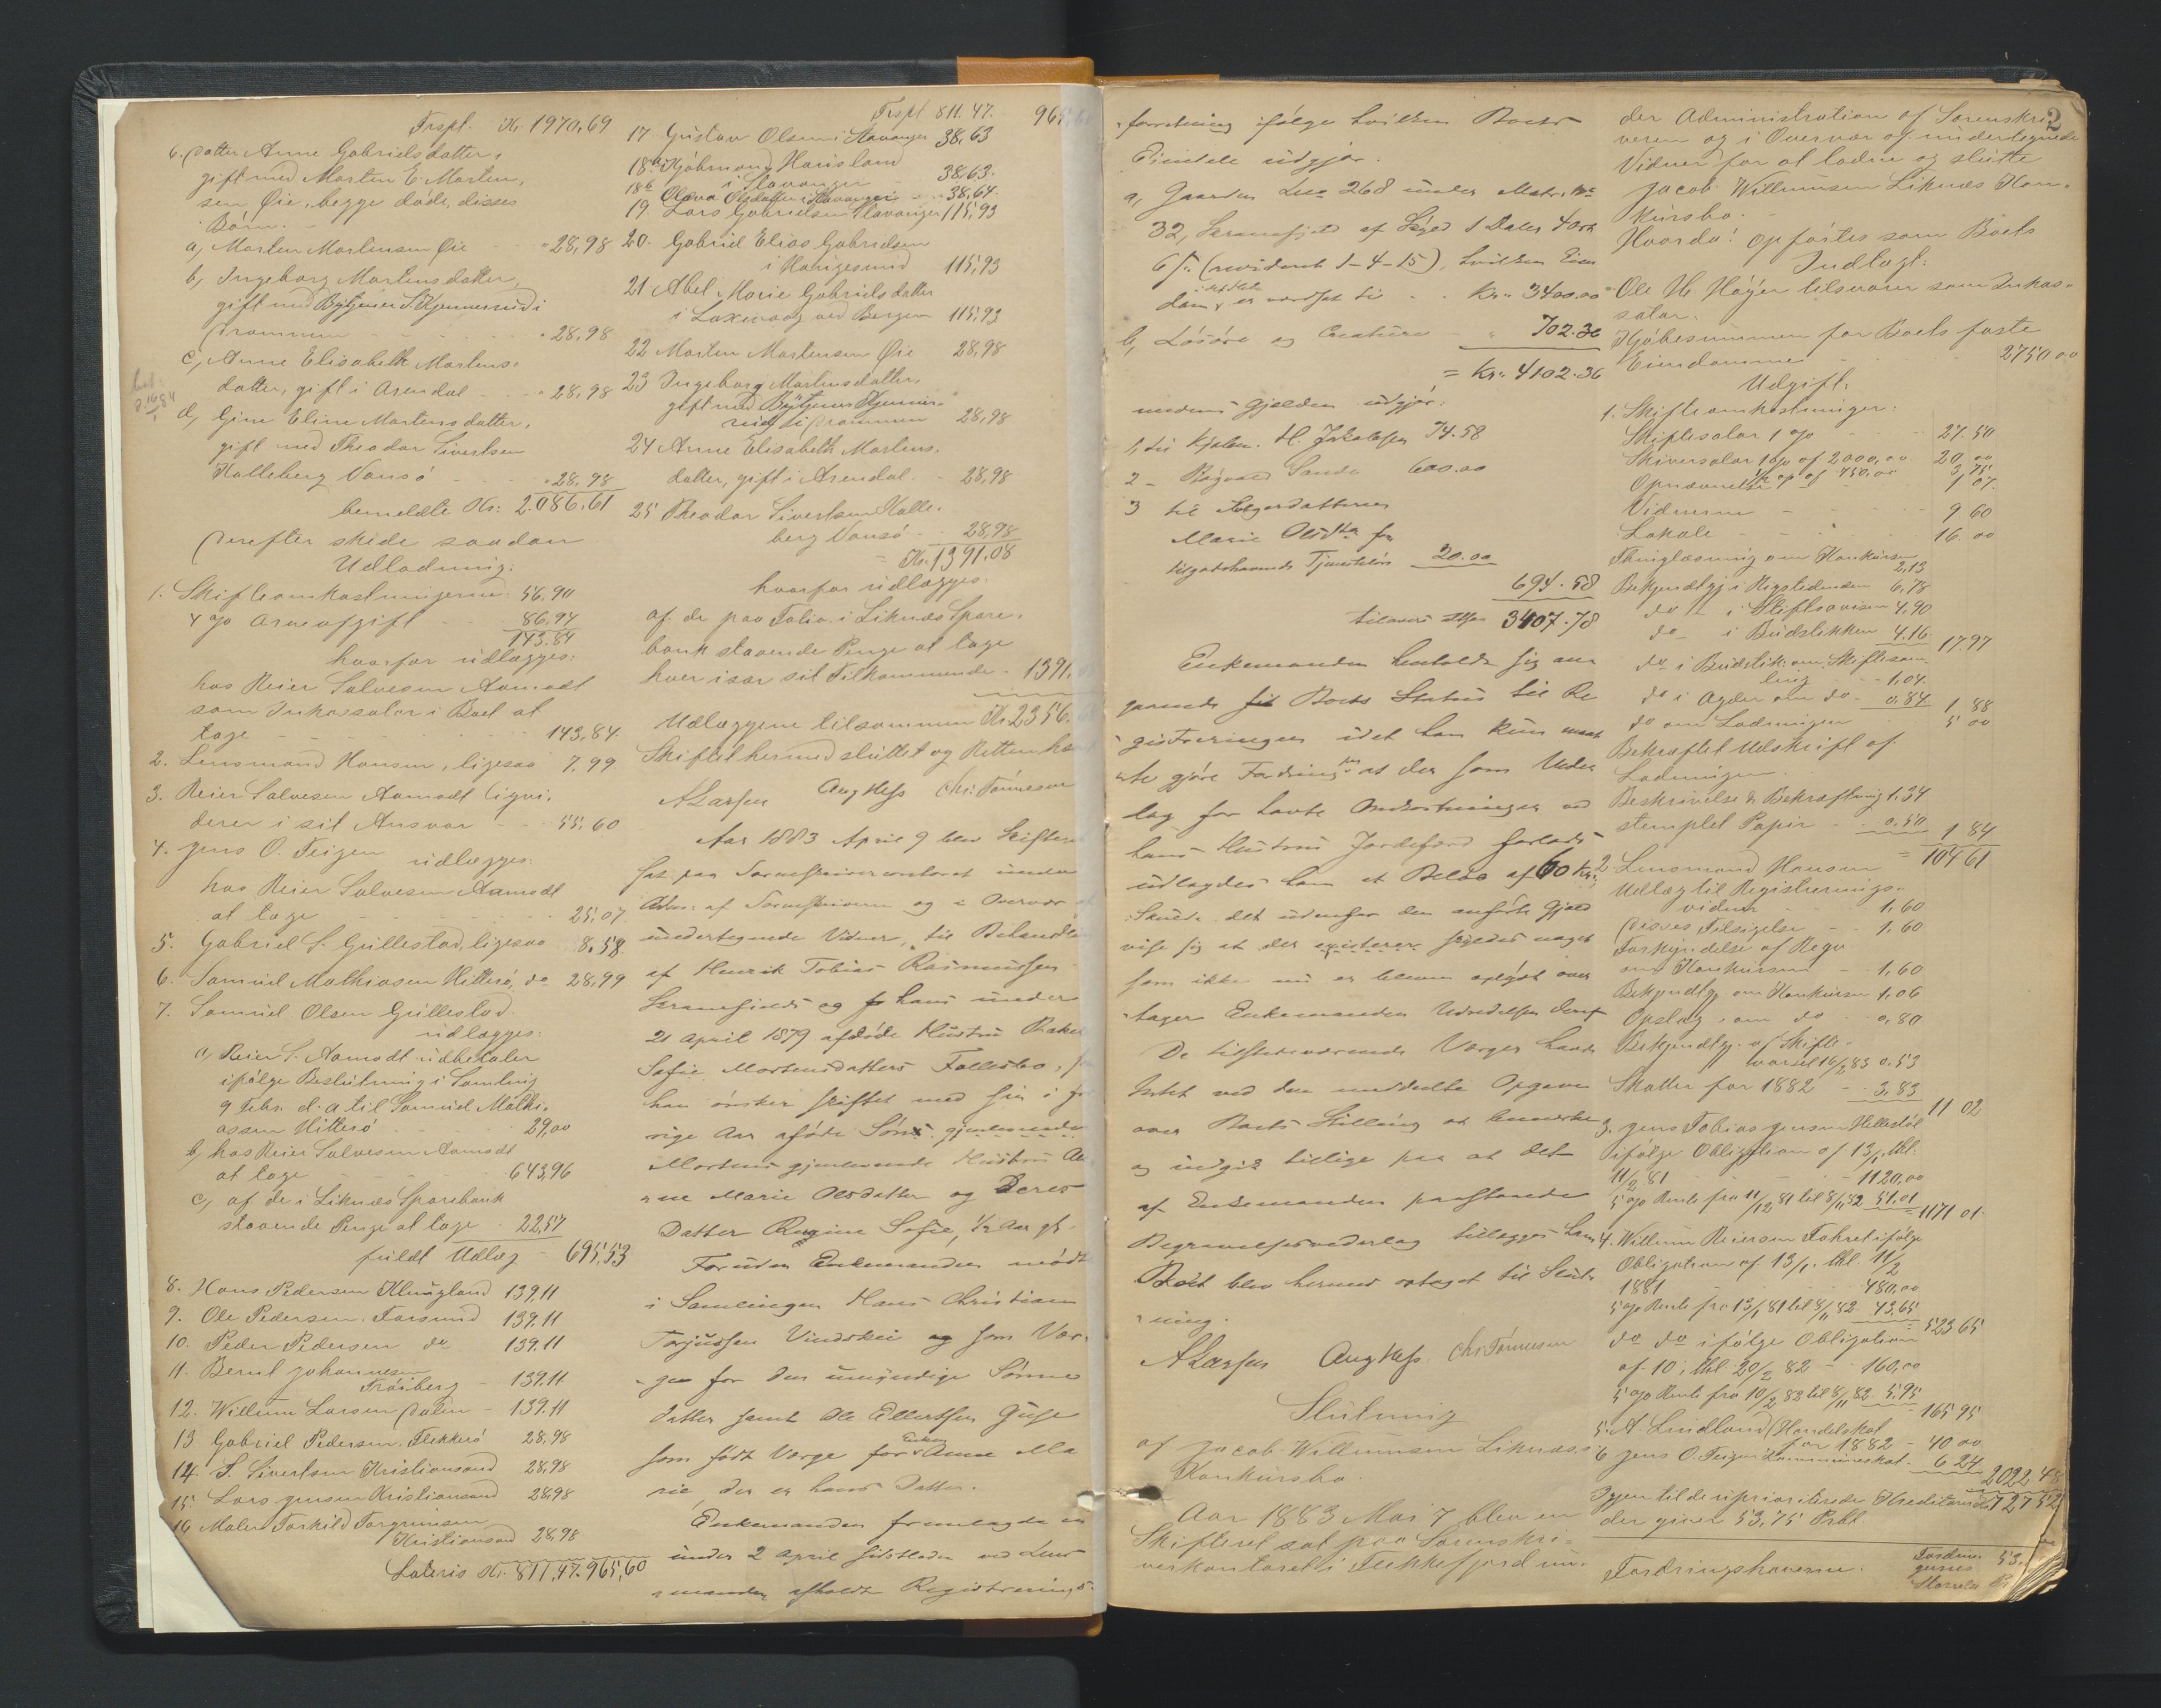 Trspt. Kr. 1970,69
6. Datter Anne Gabrielsdatter,
gift med Morten E. Morten,
sen Øie, begge døde, disses
Børn: -
a, Morten Mortensen Øie - - " 28,98
b, Ingeborg Mortensdatter,
gift med Bytjener S. Kjennerud i
Drammen - - - " 28,98
c, Anne Elisabeth Mortens-
datter, gift i Arendal - - " 28,98
d, Gine Eline Mortensdatter,
gift med Theodor Sivertsen
Kalleberg Vansø - - " 28,98
bemeldte Kr: 2.086,61
Derefter skede saadan
Udlodning:
1. Skifteomkostningerne 56,90
4 % Arveafgift - - 86,94
143,84
hvorfor udlægges:
hos Reier Salvesen Aamodt
som Inkassator i Boet at
tage - - - 143,84.
2. Lensmand Hansen, ligesaa 7,99
3. Reier Salvesen Aamodt liqvi-
derer i sit Ansvar - - 55,60
4. Jens O. Teigen udlægges:
hos Reier Salvesen Aamodt
at tage - - - 25,07.
5. Gabriel S. Gullestad, ligesaa 8,58.
6. Samuel Mathiasen Hitterø, do 28,99
7. Samuel Olsen Gullestad
udlægges:
a, Reier S. Aamodt udbetaler
ifølge Beslutning i Samling
9 Febr. d. a til Samuel Mathi-
assen Hitterø - - 29,00
b, hos Reier Salvesen Aamodt
at tage - - - 643,96
c, af de i Liknæs Sparebank
staaende Penge at tage - 22,57
fuldt Udlæg - 695,53
8. Hans Pedersen Klungland 139,11
9. Ole Pedersen Farsund 139,11
10. Peder Pedersen do 139,11
11. Bernt Johannesen
Frøiberg - 139,11
12. Willum Larsen Dalen - 139,11
13 Gabriel Pedersen, Flekkerø 28,98
14. S. Sivertsen Kristiansand 28,98
15 Lars Jensen Kristiansand 28,98
16 Maler Torkild Torgrimsen
Kristiansand 28,98
Lateris Kr. 811,47. 965,60
Trspt 811.47. 965,60
17. Gustav Olsen i Stavanger 38,63
18a Kjøbmand Hausland
i Stavanger - 38,63.
18b Olava Olsdatter i Stavanger - 38,64.
19. Lars Gabrielsen Stavanger 115,93
20. Gabriel Elias Gabrielsen
i Haugesund 115,93
21 Abel Marie Gabrielsdatter
i Laxevaag ved Bergen 115,93
22 Morten Mortensen Øie 28,98
23 Ingeborg Mortensdatter,
gift med Bytjener Kjenne-
rud i Drammen 28,98
24 Anne Elisabeth Mortens-
datter, gift i Arendal. - 28,98
25 Theodor Sivertsen Kalle-
berg Vansø - - 28,98
= Kr. 1391.08
hvorfor udlægges:
af de paa Folio i Liknæs Spare-
bank staaende Penge at tage
hver især sit Tilkommende - 1391,
Udlæggene tilsammen Kr 2356.
Skiftet hermed sluttet og Retten hævet
A Larsen Aug Hess Chr. Tønnesen
Aar 1883 April 9 blev Skifteret
sat paa Sorenskriverkontoret under
Adm. af Sorenskriveren og i Overvær af
undertegnede Vidner, til Behandling
af Henrik Tobias Rasmussen
Skranefjeld og hans under
21 April 1879 afdøde Hustru Rakel
Sofie Mortensdatters Fællesbo, som
han ønsker skiftet med sin i for
rige Aar afdøde Søns gjenlevende
Mortens gjenlevende Hustru An
ne Marie Olsdatter og Deres
Datter Regine Sofie, 1/2 Aar gl.
Foruden Enkemanden mødte
i Samlingen Hans Christian
Torjussen Vindskei og som Vær-
ger for den umyndige Sønne
datter samt Ole Ellertsen Guse
som født Værge for Enken Anne Ma
rie, der er hans Datter.
Enkemanden fremlagde en
under 2 April sidstleden ved Lens
manden afholdt Registrerings-
forretning ifølge hvilken Boets
Eiendele udgjør:
a, Gaarden Lno 268 under Matr. No
32, Skranefjeld af Skyld 1 Daler 4 Ort
6 s. (revideret 1-4-15), hvilken Eien
dom i sin Helhed er værdsat til - - Kr. 3400.00
b, Løsøre og Creature - " 702.36
= Kr. 4102.36
medens Gjælden udgjør:
1, til Kjøbm. H. Jakobsen 74.58
2 - Sigvald Sande 600.00
3 til Stegerdatteren
Marie Olsdtr for
tilgodehavende Tjenesteløn 20.00
694.58
tilovers Kr 3407.78
Enkemanden henholdt sig an
gaaende Boets Status til Re
gistreringen idet han kun maat
te gjøre Fordring paa at der som Veder
lag for havte Omkostninger ved
hans Hustrus Jordefærd forlods
udlagdes ham et Beløb af 60 Kr.
Skulde det udenfor den anførte Gjæld
vise sig at der existerer saadan noget
som ikke nu er bleven oplyst over
tager Enkemanden Udredelsen deraf
De tilstedeværende Værger havde
Intet ved den meddelte Opgave
over Boets Stilling at bemærke
og indgik tillige paa at det
af Enkemanden paastaaede
Begravelsesvederlag tillægges ham
Boet blev hermed optaget til Slut-
ning.
A Larsen Aug Hess. Chr. Tønnesen
Slutning
af Jacob Willumsen Liknæs's
Konkursbo.
Aar 1883 Mai 7 blev en
Skifteret sat paa Sorenskri-
verkontoret i Flekkefjord un-
2
der Administration af Sorenskri-
veren og i Overvær af undertegnede
Vidner for at lodne og slutte
Jacob Willumsen Liknæs Kon-
kursbo. -
Hvorda: opførtes som Boets
Indtægt:
Ole H. Høyer tilsvarer som Inkas-
sator:
Kjøbesummen for Boets faste
Eiendommer - - 2750 00
Udgift.
1. Skifteomkostninger:
Skiftesalar 1 % - - 27.50
Skriversalar 1 % af 2000,00 20,00
1/2 % af 750,00 3,75
Opnævnelse - 1 07.
Vidnerne - - - 9 60
Lokale - - - 16.00
Thinglæsning om Konkursen 2,13
Bekjendtgj. i Rigstidenden 6,78
do - i Stiftsavisen 4,90
do - i Budstikken 4.16. 17.97
do i Budstik. om Skiftesam-
ling - - 1,04.
do i Agder om do - 0.84. 1 88
do om Lodningen 5 00
Bekræftet Udskrift af
Lodningen.
Beskrivelse & Bekræftning 1,34
stemplet Papir - - 0.50 1 84
= 104 61
2 Lensmand Hansen
Udlæg til Registrerings-
vidner - 1,60
Disses Tilsigelse - - 1.60
Forkyndelse af Requ
om Konkursen - 1,60
Bekjendtgj. om Konkursen 1,06
Opslag om do - 0,80
Bekjendtgj. af Skifte-
varsel 16/2 83 0.53
Skatter for 1882 - - 3,83
11 02
3. Jens Tobias Jensen Hellestøl
ifølge Obligation af 13/1, thl.
11/2 81 - - 1120,00
5 % Rente fra 11/12 81 til 8/11 82 51.01
= 1171 01
4. Willum Reiersen Tahret ifølge
Obligation af 13/1, thl. 11/2
1881 - - 480,00
5 % Rente fra 13/1 81 til 8/11 82 43,65
= 523 65
do do ifølge Obligation
af 10, thl 20/2 82 - 160,00
5 % Rente fra 10/2 82 til 8/11 82. 5,95
165 95
5. A. Lindland, Handelsskat
for 1882 - 40 00
6 Jens O. Teigen Kommuneskat - 6 24
2022 48
Igjen til de uprioriterede Kreditorer 727 52
der giver 53,75 Pct.
Fordringshaverne: Fordrin-
gernes
Størrelse